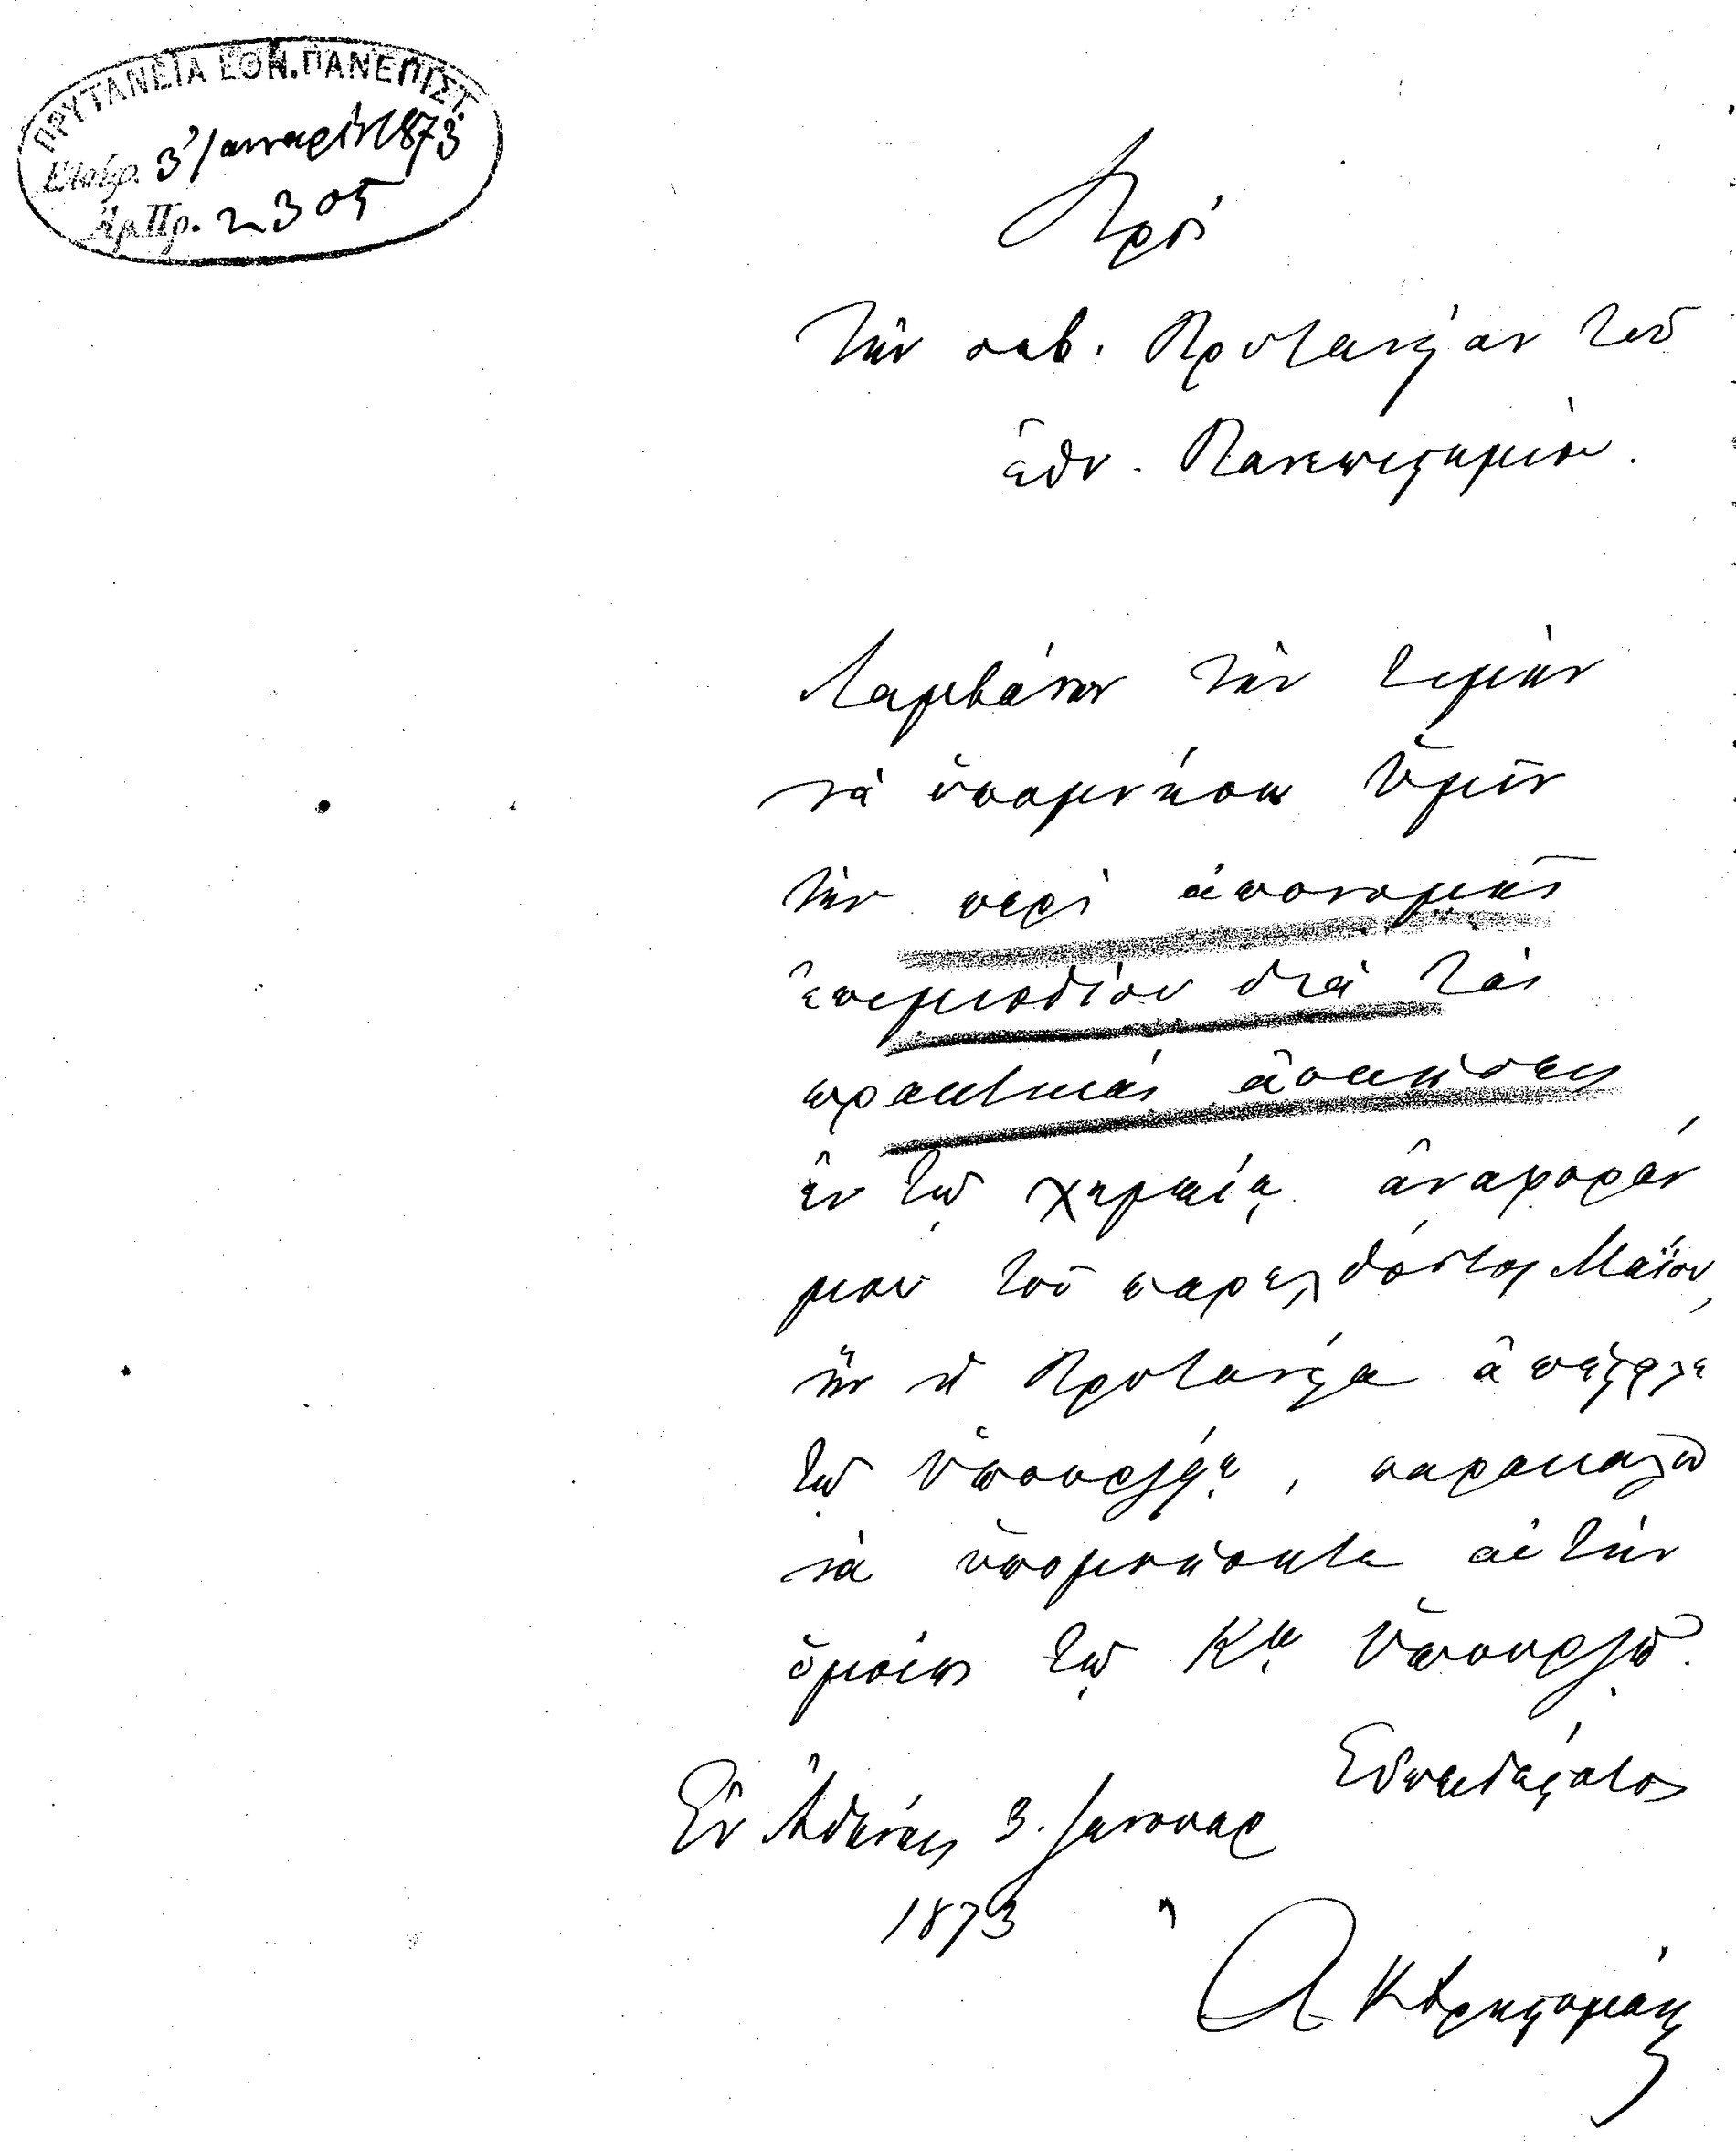 ΠΡΥΤΑΝΕΙΑ ΕΘΝ. ΠΑΝΕΠΙΣΤ.
Εἰσέρ. 3 Ἰανναρίου 1873
Ἀρ. Πρ. 2305
Πρὸς
τὴν σεβ. Πρυτανείαν τοῦ
ἐθν. Πανεπιστημίου.
Λαμβάνων τὴν τιμὴν
νὰ ὑπομνήσω Ὑμῖν
τὴν περὶ ἀπονομῆς
ἐπιμισθίου διὰ τὰς
πρακτικὰς ἀσκήσεις
ἐν τῷ χημείῳ ἀναφοράν
μου τοῦ παρελθόντος Μαΐου,
ἣν ἡ Πρυτανεία ἀπέστειλε
τῷ Ὑπουργείῳ, παρακαλῶ
νὰ ὑπομνήσητε αὐτὴν
ὁμοίως τῷ Κῳ Ὑπουργῷ.
Εὐπειθέστατος
Ἐν Ἀθήναις 3. Ἰανουαρ
1873
Α Κ Χρηστομάνος